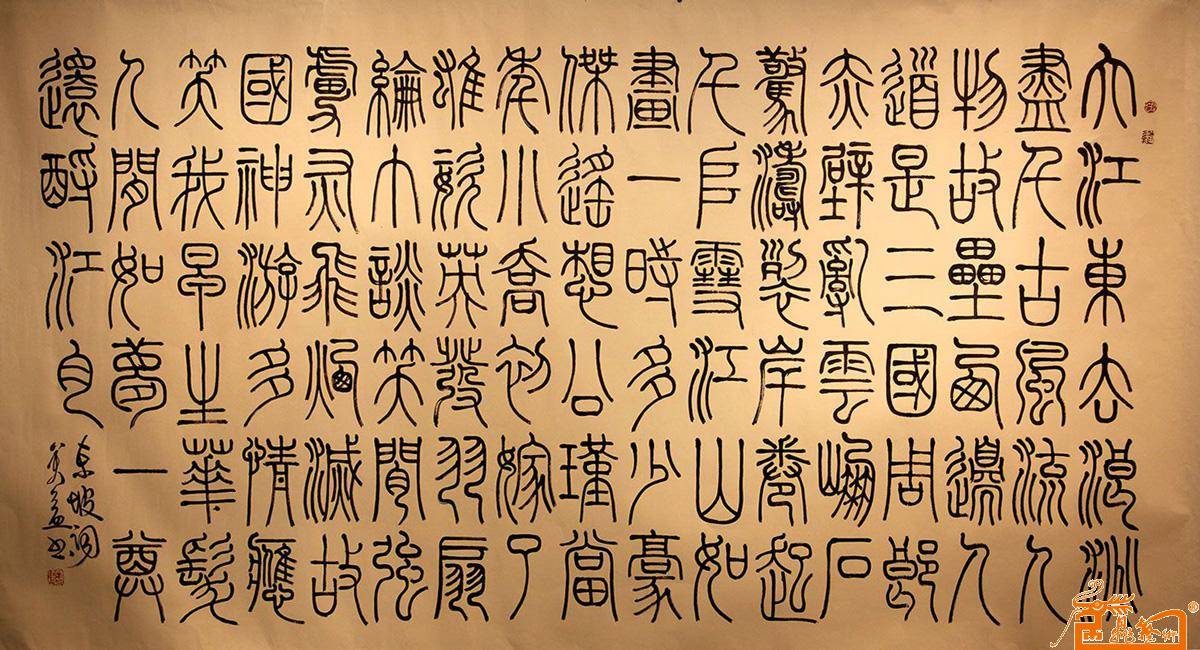 大江東去浪淘
盡千古風流人
物故壘西邊人
道是三國周郎
赤壁亂雲崩石
驚濤裂岸卷起
千堆雪江山如
畫一時多少豪
傑遙想公瑾當
年小喬初嫁了
雄姿英發羽扇
綸巾談笑間強
虜灰飛煙滅故
國神游多情應
笑我早生華髮
人間如夢一尊
還酹江月
東坡詞